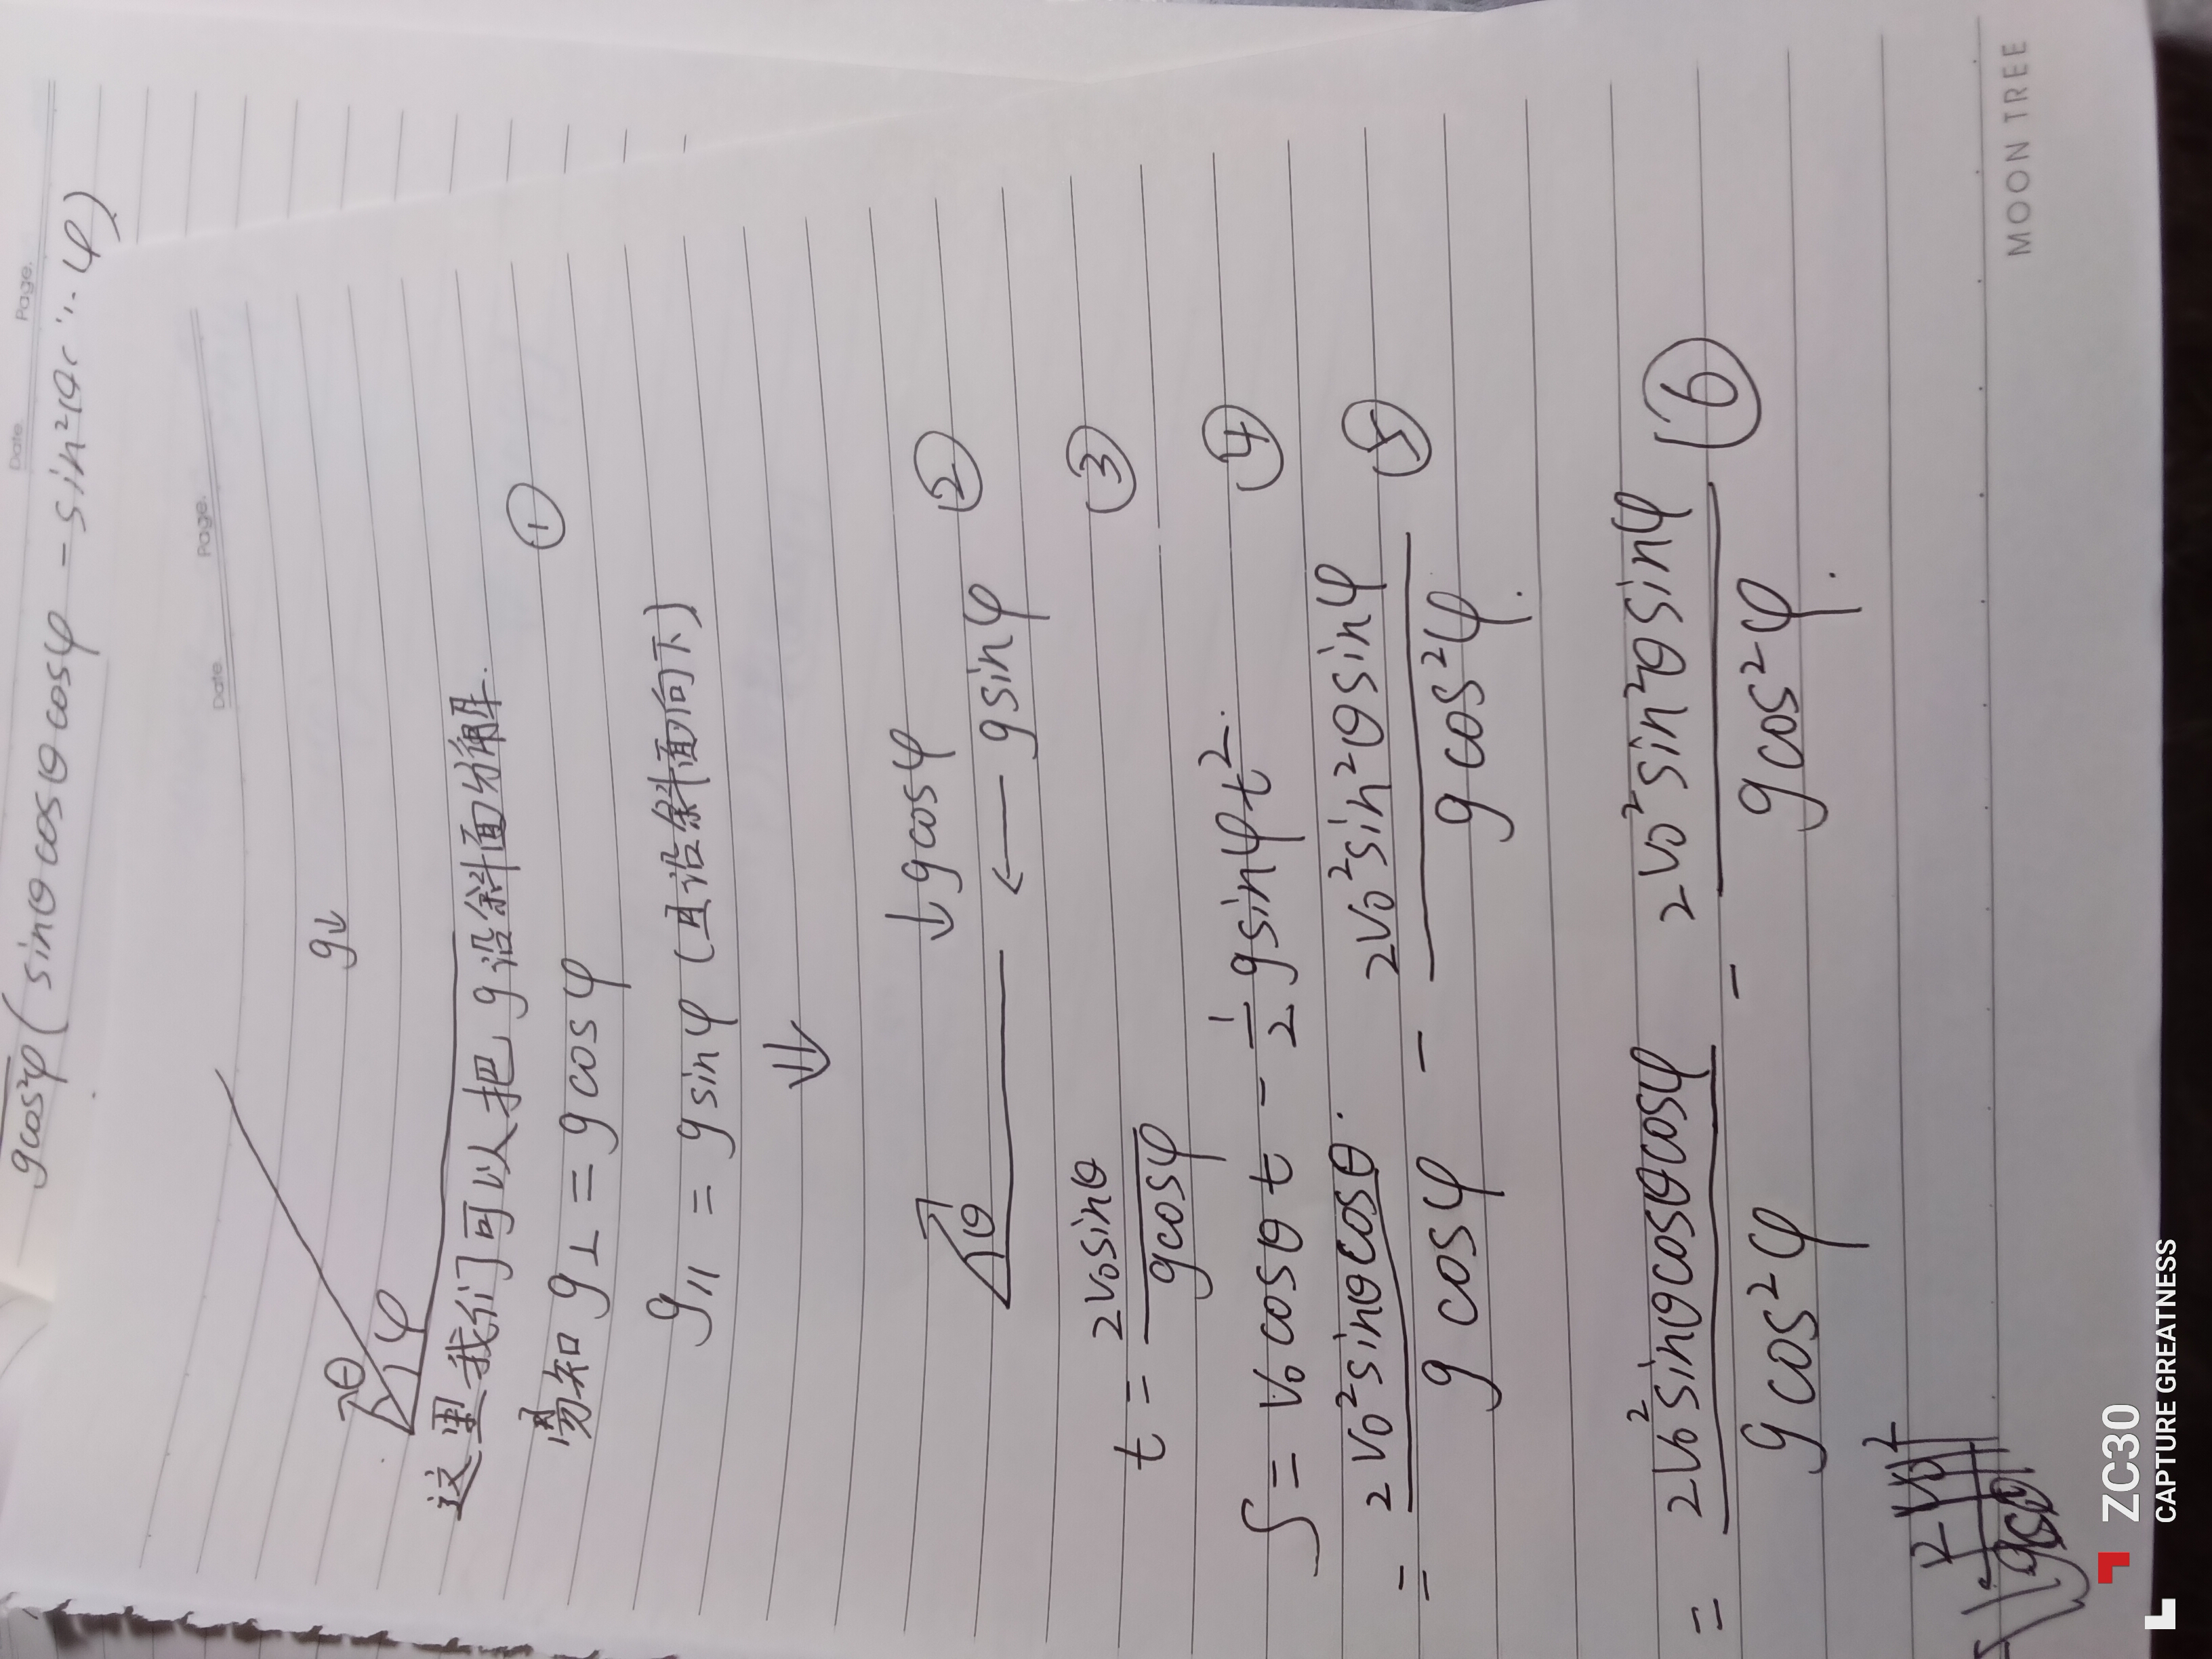 Date. Page.
gcos²φ ( sinθ cosθ cosφ - sin²θ
Date. Page.
g↓
θ
φ
这里我们可以把g沿斜面分解.
易知 g⊥ = g cosφ ①
g∥ = g sinφ (且沿斜面向下)
⇓
↓gcosφ
θ ← gsinφ ②
t = 2v₀sinθ / gcosφ ③
S = v₀ cosθ t - 1/2 g sinφ t². ④
= 2v₀² sinθ cosθ / g cosφ - 2v₀² sin²θ sinφ / g cos²φ. ⑤
= 2v₀² sinθ cosθ cosφ / g cos²φ - 2v₀² sin²θ sinφ / g cos²φ. ⑥
MOON TREE
ZC30
CAPTURE GREATNESS